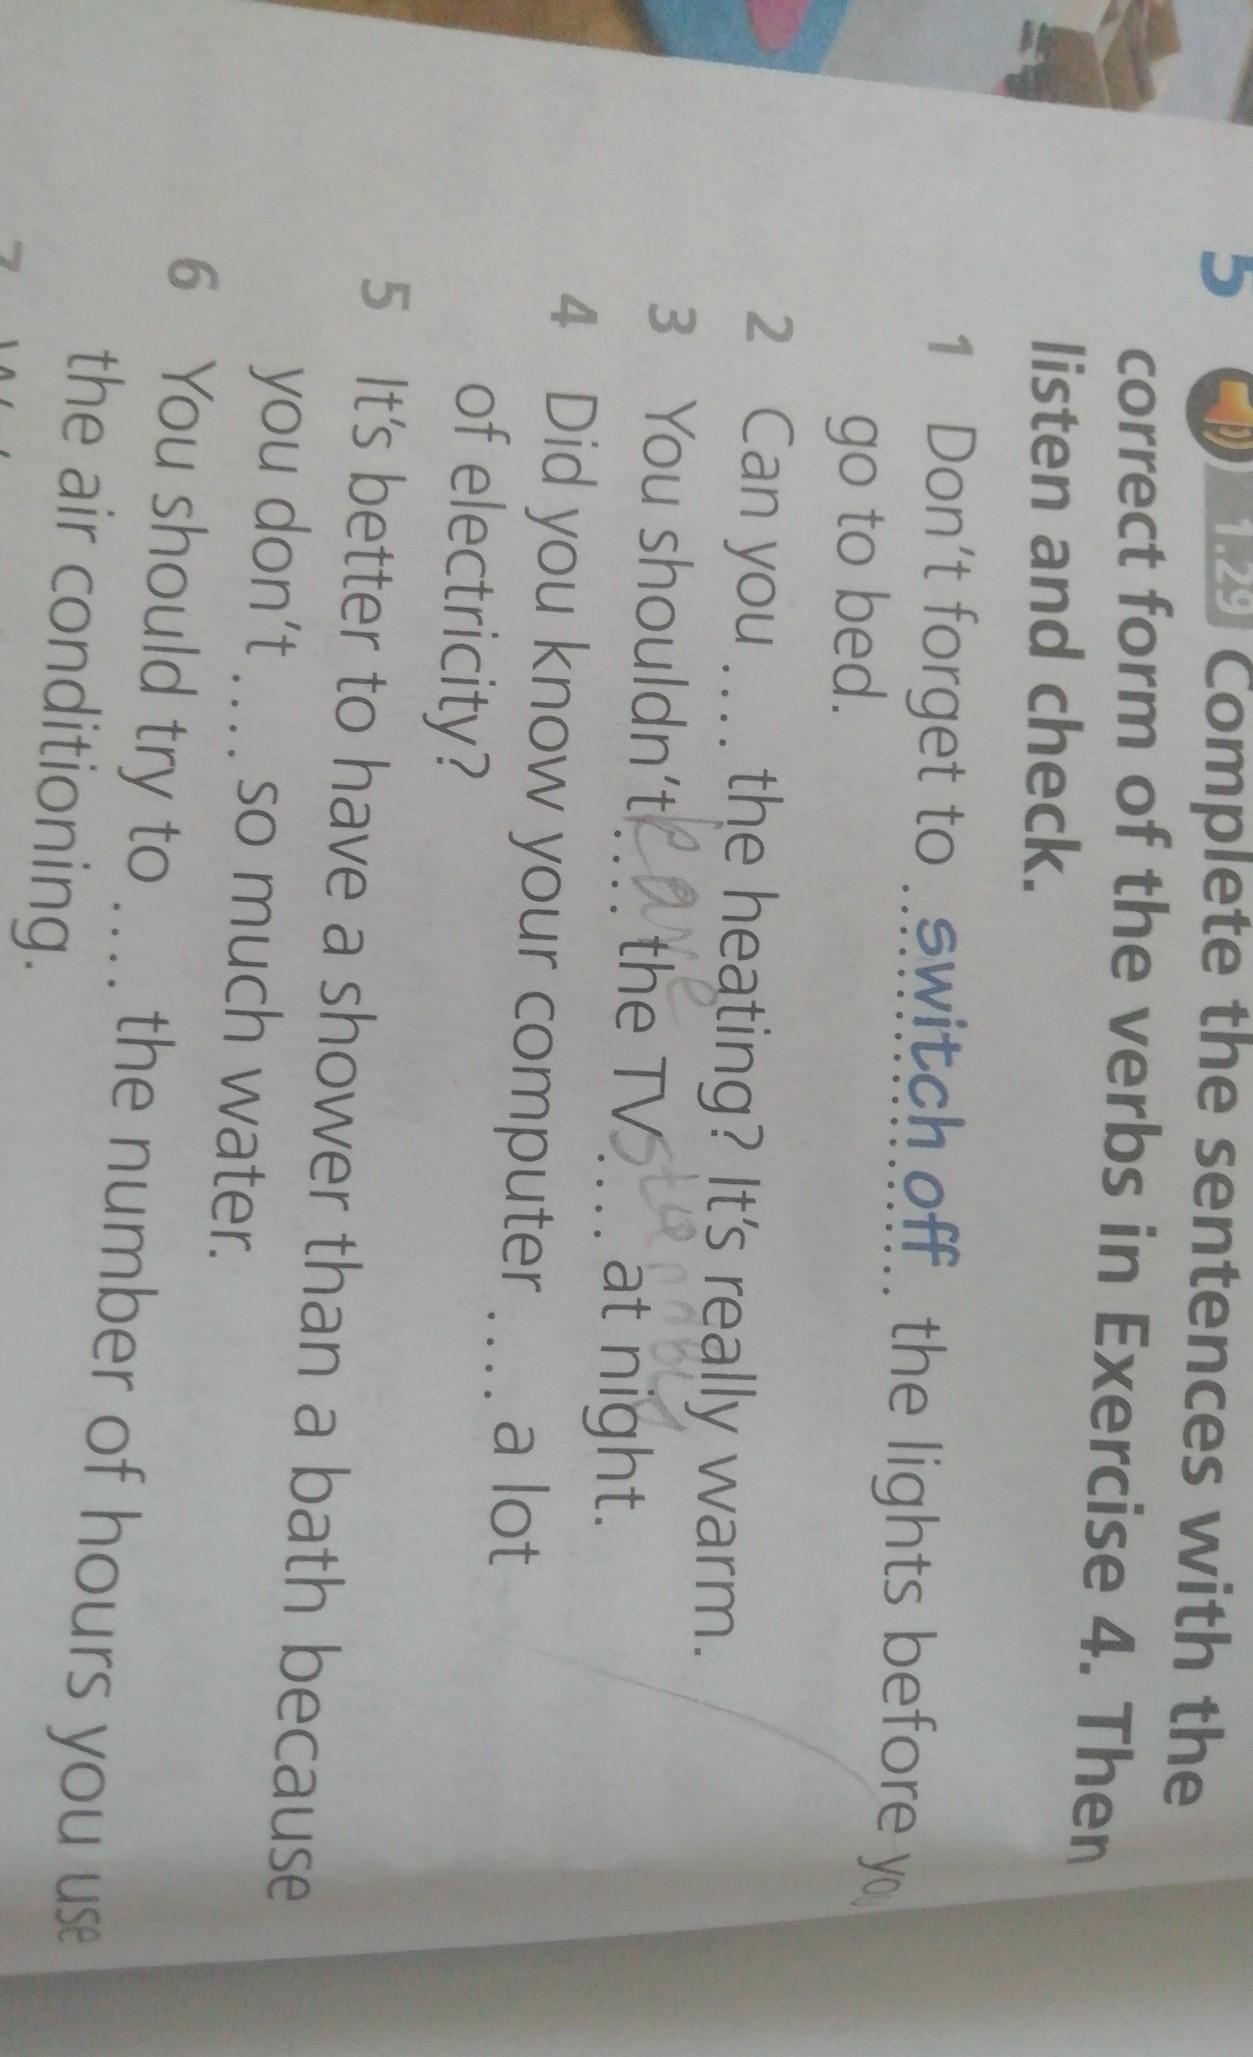 5 1.29 Complete the sentences with the
correct form of the verbs in Exercise 4. Then
listen and check.
1 Don't forget to switch off the lights before you
go to bed.
2 Can you .... the heating? It's really warm.
3 You shouldn't leave .... the TV standby .... at night.
4 Did you know your computer .... a lot
of electricity?
5 It's better to have a shower than a bath because
you don't .... so much water.
6 You should try to .... the number of hours you use
the air conditioning.
7